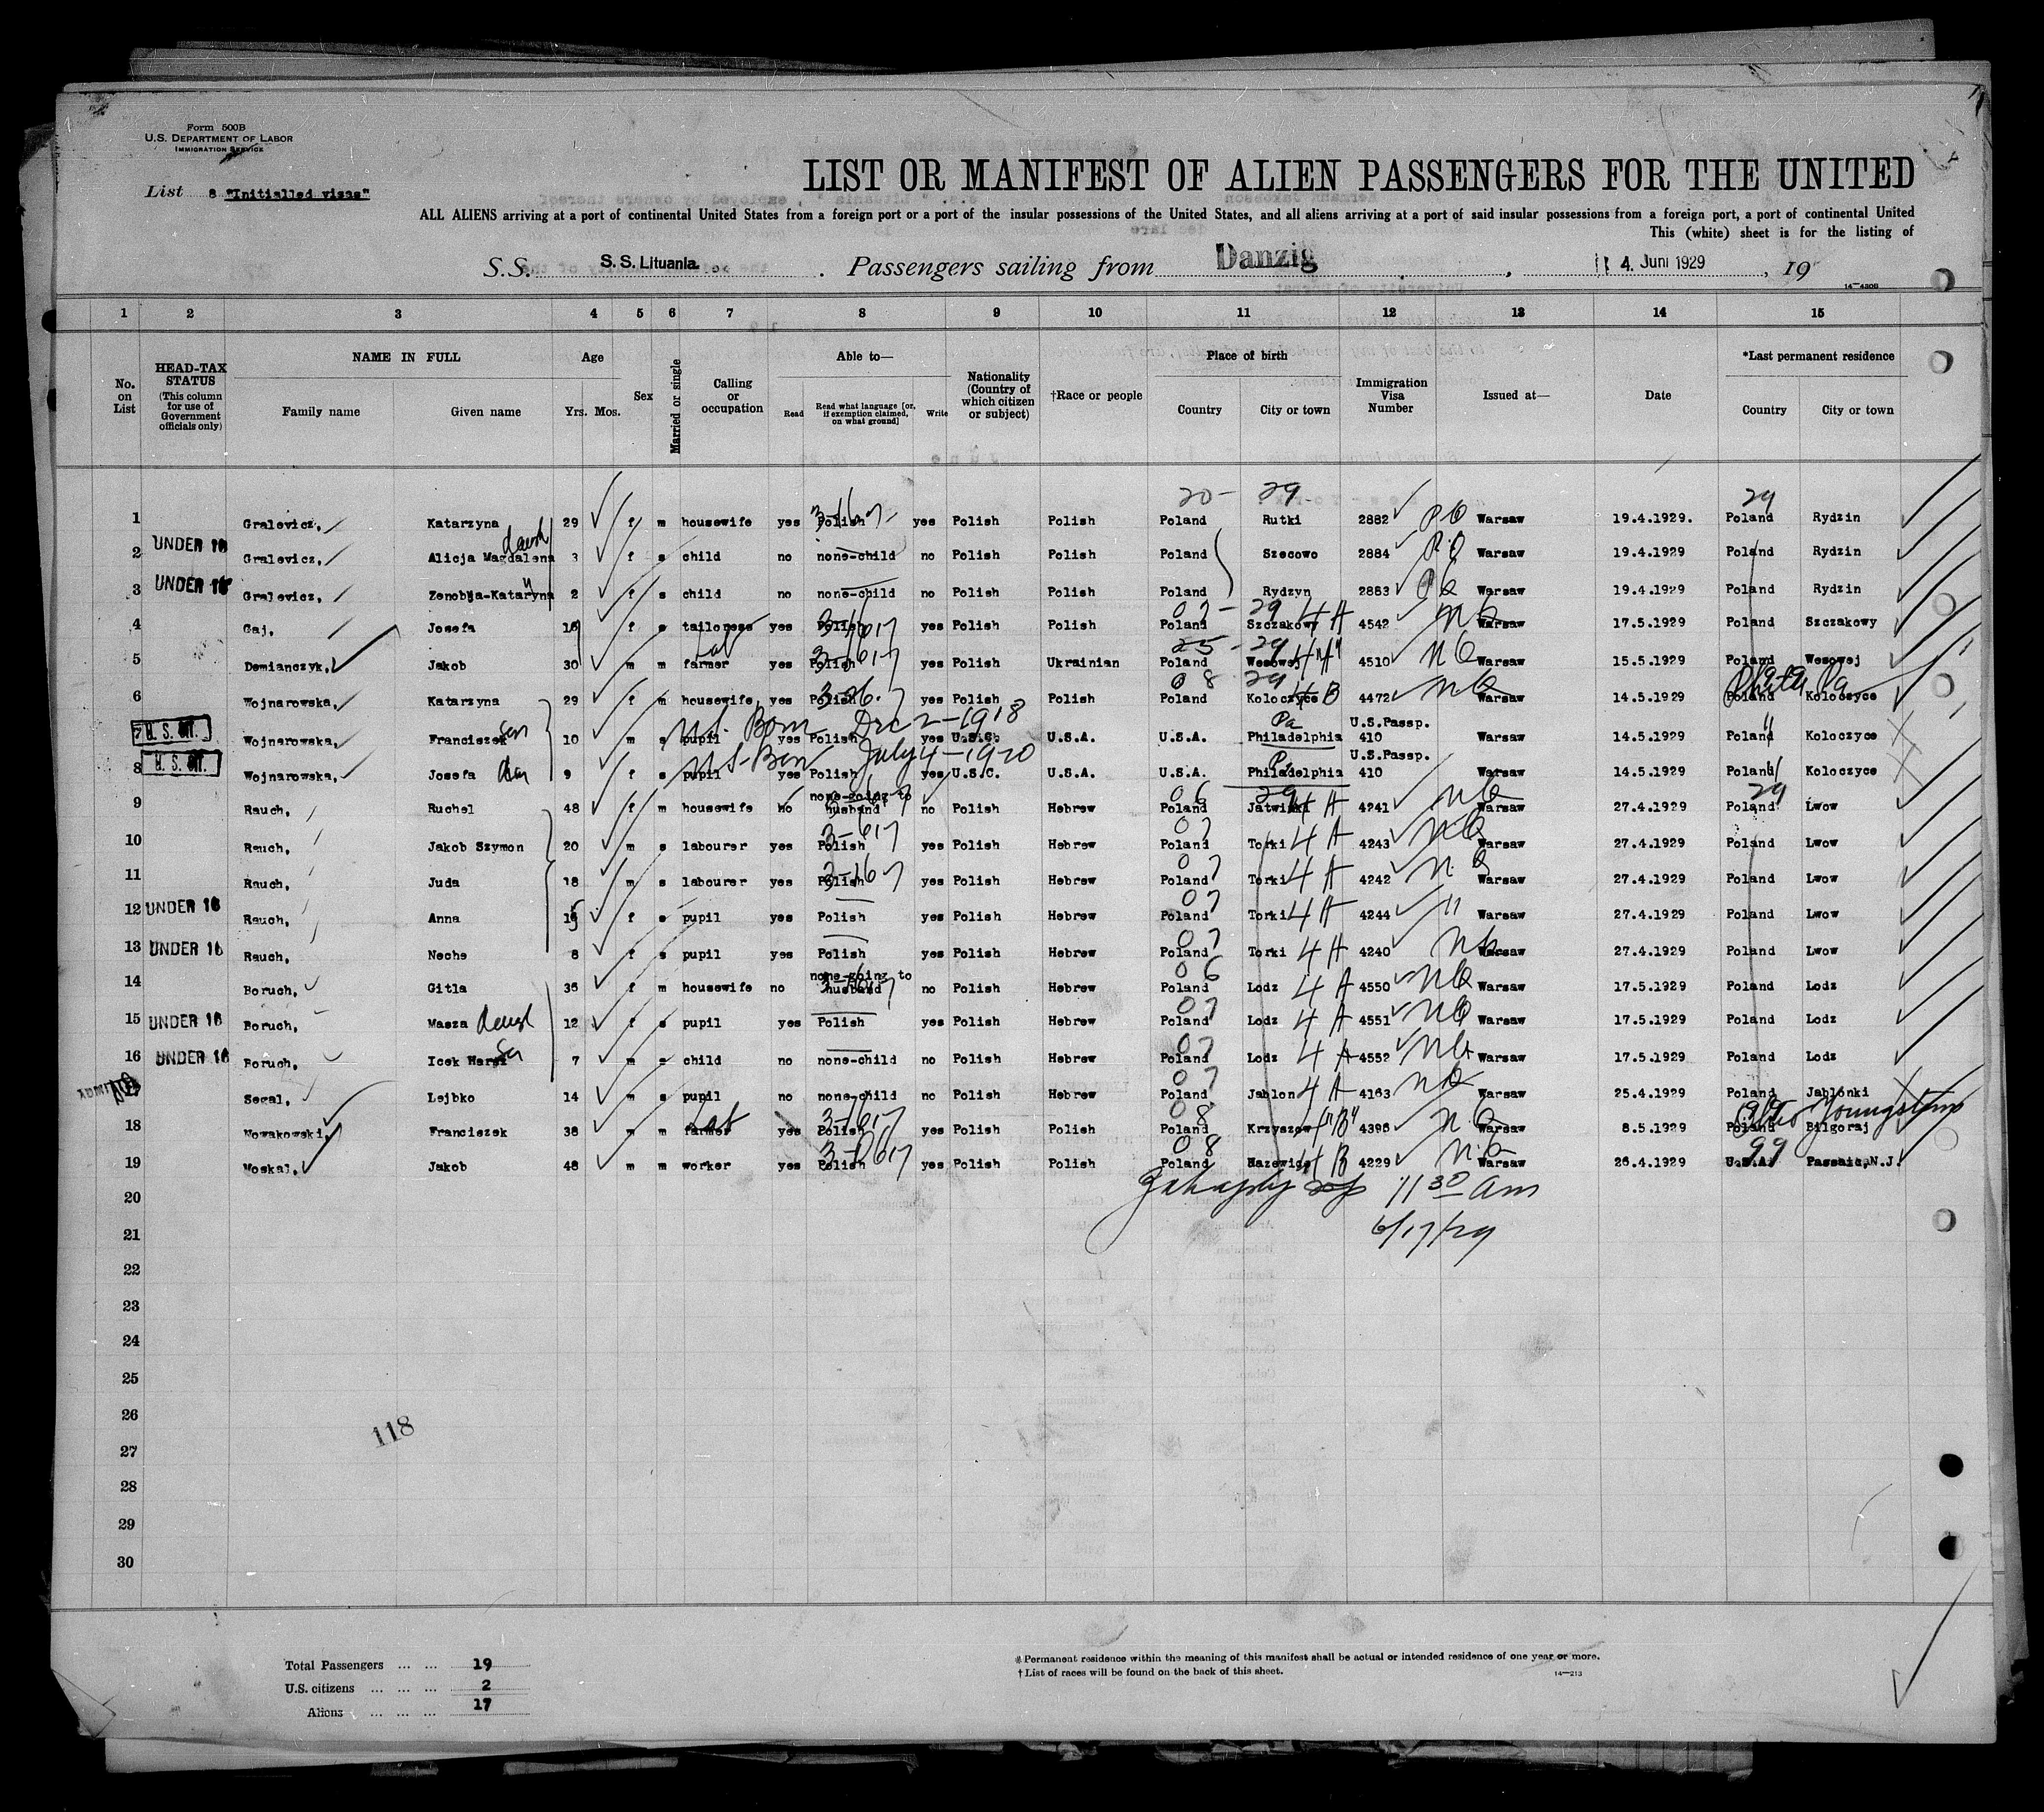 Form 500B
U.S. DEPARTMENT OF LABOR
IMMIGRATION SERVICE
List 8 "Initialled visas"
LIST OR MANIFEST OF ALIEN PASSENGERS FOR THE UNITED
ALL ALIENS arriving at a port of continental United States from a foreign port or a port of the insular possessions of the United States, and all aliens arriving at a port of said insular possessions from a foreign port, a port of continental United
This (white) sheet is for the listing of
S.S. S.S. Lituania. Passengers sailing from Danzig, 4. Juni 1929, 19
14—430B
1 2 3 4 5 6 7 8 9 10 11 12 13 14 15
No. on List HEAD-TAX STATUS (This column for use of Government officials only) NAME IN FULL Family name Given name Age Yrs. Mos. Sex Married or single Calling or occupation Able to— Read Read what language [or, if exemption claimed, on what ground] Write Nationality (Country of which citizen or subject) †Race or people Place of birth Country City or town Immigration Visa Number Issued at— Date *Last permanent residence Country City or town
20- 29. 29
1 Gralevicz, Katarzyna 29 f m housewife yes Polish yes Polish Polish Poland Rutki 2882 PO Warsaw 19.4.1929. Poland Rydzin
2 UNDER 16 Gralevicz, Alicja Magdalena 3 f s child no none-child no Polish Polish Poland Szecowo 2884 PO Warsaw 19.4.1929 Poland Rydzin
3 UNDER 16 Gralevicz, Zenobja-Kataryna 2 f s child no none-child no Polish Polish Poland Rydzyn 2883 Warsaw 19.4.1929 Poland Rydzin
07-29 4A
4 Gaj, Josefa 16 f s tailoress yes Polish yes Polish Polish Poland Szczakowy 4542 Warsaw 17.5.1929 Poland Szczakowy
25-29 4"A"
5 Demianczyk, Jakob 30 m m farmer yes Polish yes Polish Ukrainian Poland Wesowej 4510 Warsaw 15.5.1929 Poland Wesowej
08 29 Phila Pa
6 Wojnarowska, Katarzyna 29 f m housewife yes Polish yes Polish Polish Poland Koloczyce 4B 4472 Warsaw 14.5.1929 Poland Koloczyce
U.S. Born Dec 2-1918 Pa U.S.Passp.
U.S. CIT. Wojnarowska, Franciszek son 10 m s pupil yes Polish yes U.S.C. U.S.A. U.S.A. Philadelphia 410 Warsaw 14.5.1929 Poland Koloczyce
U.S. Born July 4-1920 Pa U.S.Passp.
8 U.S. CIT. Wojnarowska, Josefa 9 f s pupil yes Polish yes U.S.C. U.S.A. U.S.A. Philadelphia 410 Warsaw 14.5.1929 Poland Koloczyce
9 Rauch, Ruchel 48 f m housewife no none-going to husband no Polish Hebrew Poland Jatwiski 4A 4241 Warsaw 27.4.1929 Poland Lwow
10 Rauch, Jakob Szymon 20 m s labourer yes Polish yes Polish Hebrew Poland Torki 4A 4243 Warsaw 27.4.1929 Poland Lwow
11 Rauch, Juda 18 m s labourer yes Polish yes Polish Hebrew Poland Torki 4A 4242 Warsaw 27.4.1929 Poland Lwow
12 UNDER 16 Rauch, Anna 15 f s pupil yes Polish yes Polish Hebrew Poland Torki 4A 4244 " Warsaw 27.4.1929 Poland Lwow
13 UNDER 16 Rauch, Neche 8 f s pupil yes Polish yes Polish Hebrew Poland Torki 4A 4240 Warsaw 27.4.1929 Poland Lwow
14 Boruch, Gitla 35 f m housewife no none-going to husband no Polish Hebrew Poland Lodz 4A 4550 Warsaw 17.5.1929 Poland Lodz
15 UNDER 16 Boruch, Masza 12 f s pupil yes Polish yes Polish Hebrew Poland Lodz 4A 4551 Warsaw 17.5.1929 Poland Lodz
16 UNDER 16 Boruch, Icek 7 m s child no none-child no Polish Hebrew Poland Lodz 4A 4552 Warsaw 17.5.1929 Poland Lodz
ADMITTED Segal, Lejbko 14 m s pupil no none-child no Polish Hebrew Poland Jablon 4A 4163 Warsaw 25.4.1929 Poland Jablonki
Ohio Youngstown
18 Nowakowski, Franciszek 38 m m farmer yes Polish yes Polish Polish Poland Krzyszow "B" 4398 Warsaw 8.5.1929 Poland Bilgoraj
99
19 Moskal, Jakob 48 m m worker yes Polish yes Polish Polish Poland 4B 4229 Warsaw 26.4.1929 U.S.A. Passaic, N.J.
20 11 30 am
21 6/17/29
22
23
24
25
26
118
27
28
29
30
Total Passengers ... ... 19
U.S. citizens ... ... ... 2
Aliens ... ... ... 17
* Permanent residence within the meaning of this manifest shall be actual or intended residence of one year or more.
† List of races will be found on the back of this sheet.
14—213